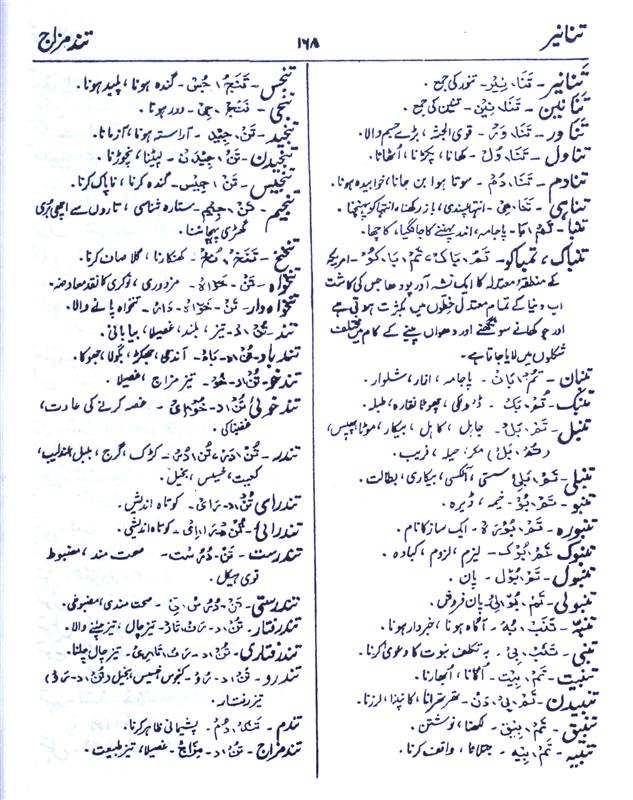 تنانیر
۱۶۸
تند مزاج
تَنانیر۔ تَنَا، نِیْر۔ تنور کی جمع۔
تنانین۔ تَنَا، نِیْن۔ تنین کی جمع۔
تناور۔ تَنَا، وَرْ۔ قوی الجثہ، بڑے جسم والا۔
تناول۔ تَنَا، وُلْ۔ کھانا، پکڑنا، اُٹھانا۔
تنادم۔ تَنَا، دُمْ۔ سوتا ہوا بن جانا، خوابیدہ ہونا۔
تناہی۔ تَنَا، ہِیْ۔ انتہا پسندی، باز رکھنا، انتہا کو پہنچنا۔
تنبا۔ پاجامہ، اندر پہننے کا جانگیا، کاچھا۔
تنباک، تمباکو۔ تَمْ، بَاکْ، تَمْ، بَا، کُوْ۔ امریکہ
کے منطقۂ معتدلہ کا ایک نشہ آور پودہا جس کی کاشت
اب دنیا کے تمام معتدل خطوں میں بکثرت ہوتی ہے
اور جو کھانے سونگھنے اور دھواں پینے کے کام میں مختلف
شکلوں میں لایا جاتا ہے۔
تنبان۔ تُمْ، بَانْ۔ پاجامہ، ازار، شلوار۔
تنبک۔ تُمْ، بَکْ۔ ڈھولکی، چھوٹا نقارہ، طبلہ۔
تنبل۔ تَمْ، بَلْ۔ جاہل، کاہل، بیکار، موٹا بھیس،
(تُمْ، بَلْ) مکر، حیلہ، فریب۔
تنبلی۔ تَمْ، بَلِیْ۔ سستی، آلکسی، بیکاری، بطالت۔
تنبو۔ تَمْ، بُوْ۔ خیمہ، ڈیرہ۔
تنبورہ۔ تَمْ، بُوْرَہ۔ ایک ساز کا نام۔
تنبوک۔ تَمْ، بُوْک۔ لیزم، لزوم، کبادہ۔
تنبول۔ تَمْ، بُوْل۔ پان۔
تنبولی۔ تَمْ، بُوْلِیْ۔ پان فروش۔
تنبہ۔ تَنَبْ، بُہْ۔ آگاہ ہونا، خبردار ہونا۔
تنبی۔ تَنَبْ، بِیْ۔ بہ تکلف نبوت کا دعویٰ کرنا۔
تنبیت۔ تَمْ، بِیْت۔ اُگانا، اُبھارنا۔
تنبیدن۔ تَمْ، بِیْ، دَنْ۔ تھرتھرانا، کانپنا، لرزنا۔
تنبیق۔ تَمْ، بِیْق۔ لکھنا، نوشتن۔
تنبیہ۔ تَمْ، بِیْہ۔ جتلانا، واقف کرنا۔
تنجس۔ تَنَجْ، جُسْ۔ گندہ ہونا، پلید ہونا۔
تنجی۔ تَنَجْ، جِیْ۔ دور ہونا۔
تنجید۔ تَنْ، جِیْد۔ آراستہ ہونا، آزمانا۔
تنجیدن۔ تَنْ، جِیْدَنْ۔ لپٹنا، نچوڑنا۔
تنجیس۔ تَنْ، جِیْس۔ گندہ کرنا، ناپاک کرنا۔
تنجیم۔ تَنْ، جِیْم۔ ستارہ شناسی، تاروں سے اچھی بُری
گھڑی پہچاننا۔
تنخنخ۔ کھنکارنا، گلا صاف کرنا۔
تنخواہ۔ تَنْ، خَوَاہْ۔ مزدوری، نوکری کا نقد معاوضہ۔
تنخواہ دار۔ تَنْ، خَوَاہْ، دَارْ۔ تنخواہ پانے والا۔
تند۔ تُنْ، دْ۔ تیز، بلند، غصیلا، بیابانی۔
تند باد۔ تُنْ، دْ، بَادْ۔ آندھی، جھکڑ، بگولا، جھوکا۔
تند خو۔ تُنْ، دْ، خُوْ۔ تیز مزاج، غصیلا۔
تند خوئی۔ تُنْ، دْ، خُوْئِیْ۔ غصہ کرنے کی عادت،
غضبناکی۔
تندر۔ تُنْ، دَرْ، تُنْ، دُرْ۔ کڑک، گرج، بلبل، عندلیب،
کمیت، خسیس، بخیل۔
تند رای۔ تُنْ، دْ، رَایْ۔ کوتاہ اندیش۔
تند رائی۔ تُنْ، دْ، رَائِیْ۔ کوتاہ اندیشی۔
تندرست۔ تَنْ، دُرُسْت۔ صحت مند، مضبوط
قوی ہیکل۔
تندرستی۔ تَنْ، دُرُسْ، تِیْ۔ صحت مندی، مضبوطی۔
تند رفتار۔ تُنْ، دْ، رَفْ، تَارْ۔ تیز چال، تیز چلنے والا۔
تند رفتاری۔ تُنْ، دْ، رَفْ، تَارِیْ۔ تیز چال چلنا۔
تند رو۔ تُنْ، دْ، رُوْ۔ کنجوس خسیس بخیل (تُنْ، دْ، رَوْ)
تیز رفتار۔
تندم۔ تَنَدْ، دُمْ۔ پشیمانی ظاہر کرنا۔
تند مزاج۔ تُنْ، دْ، مِزَاجْ۔ غصیلا، تیز طبیعت۔